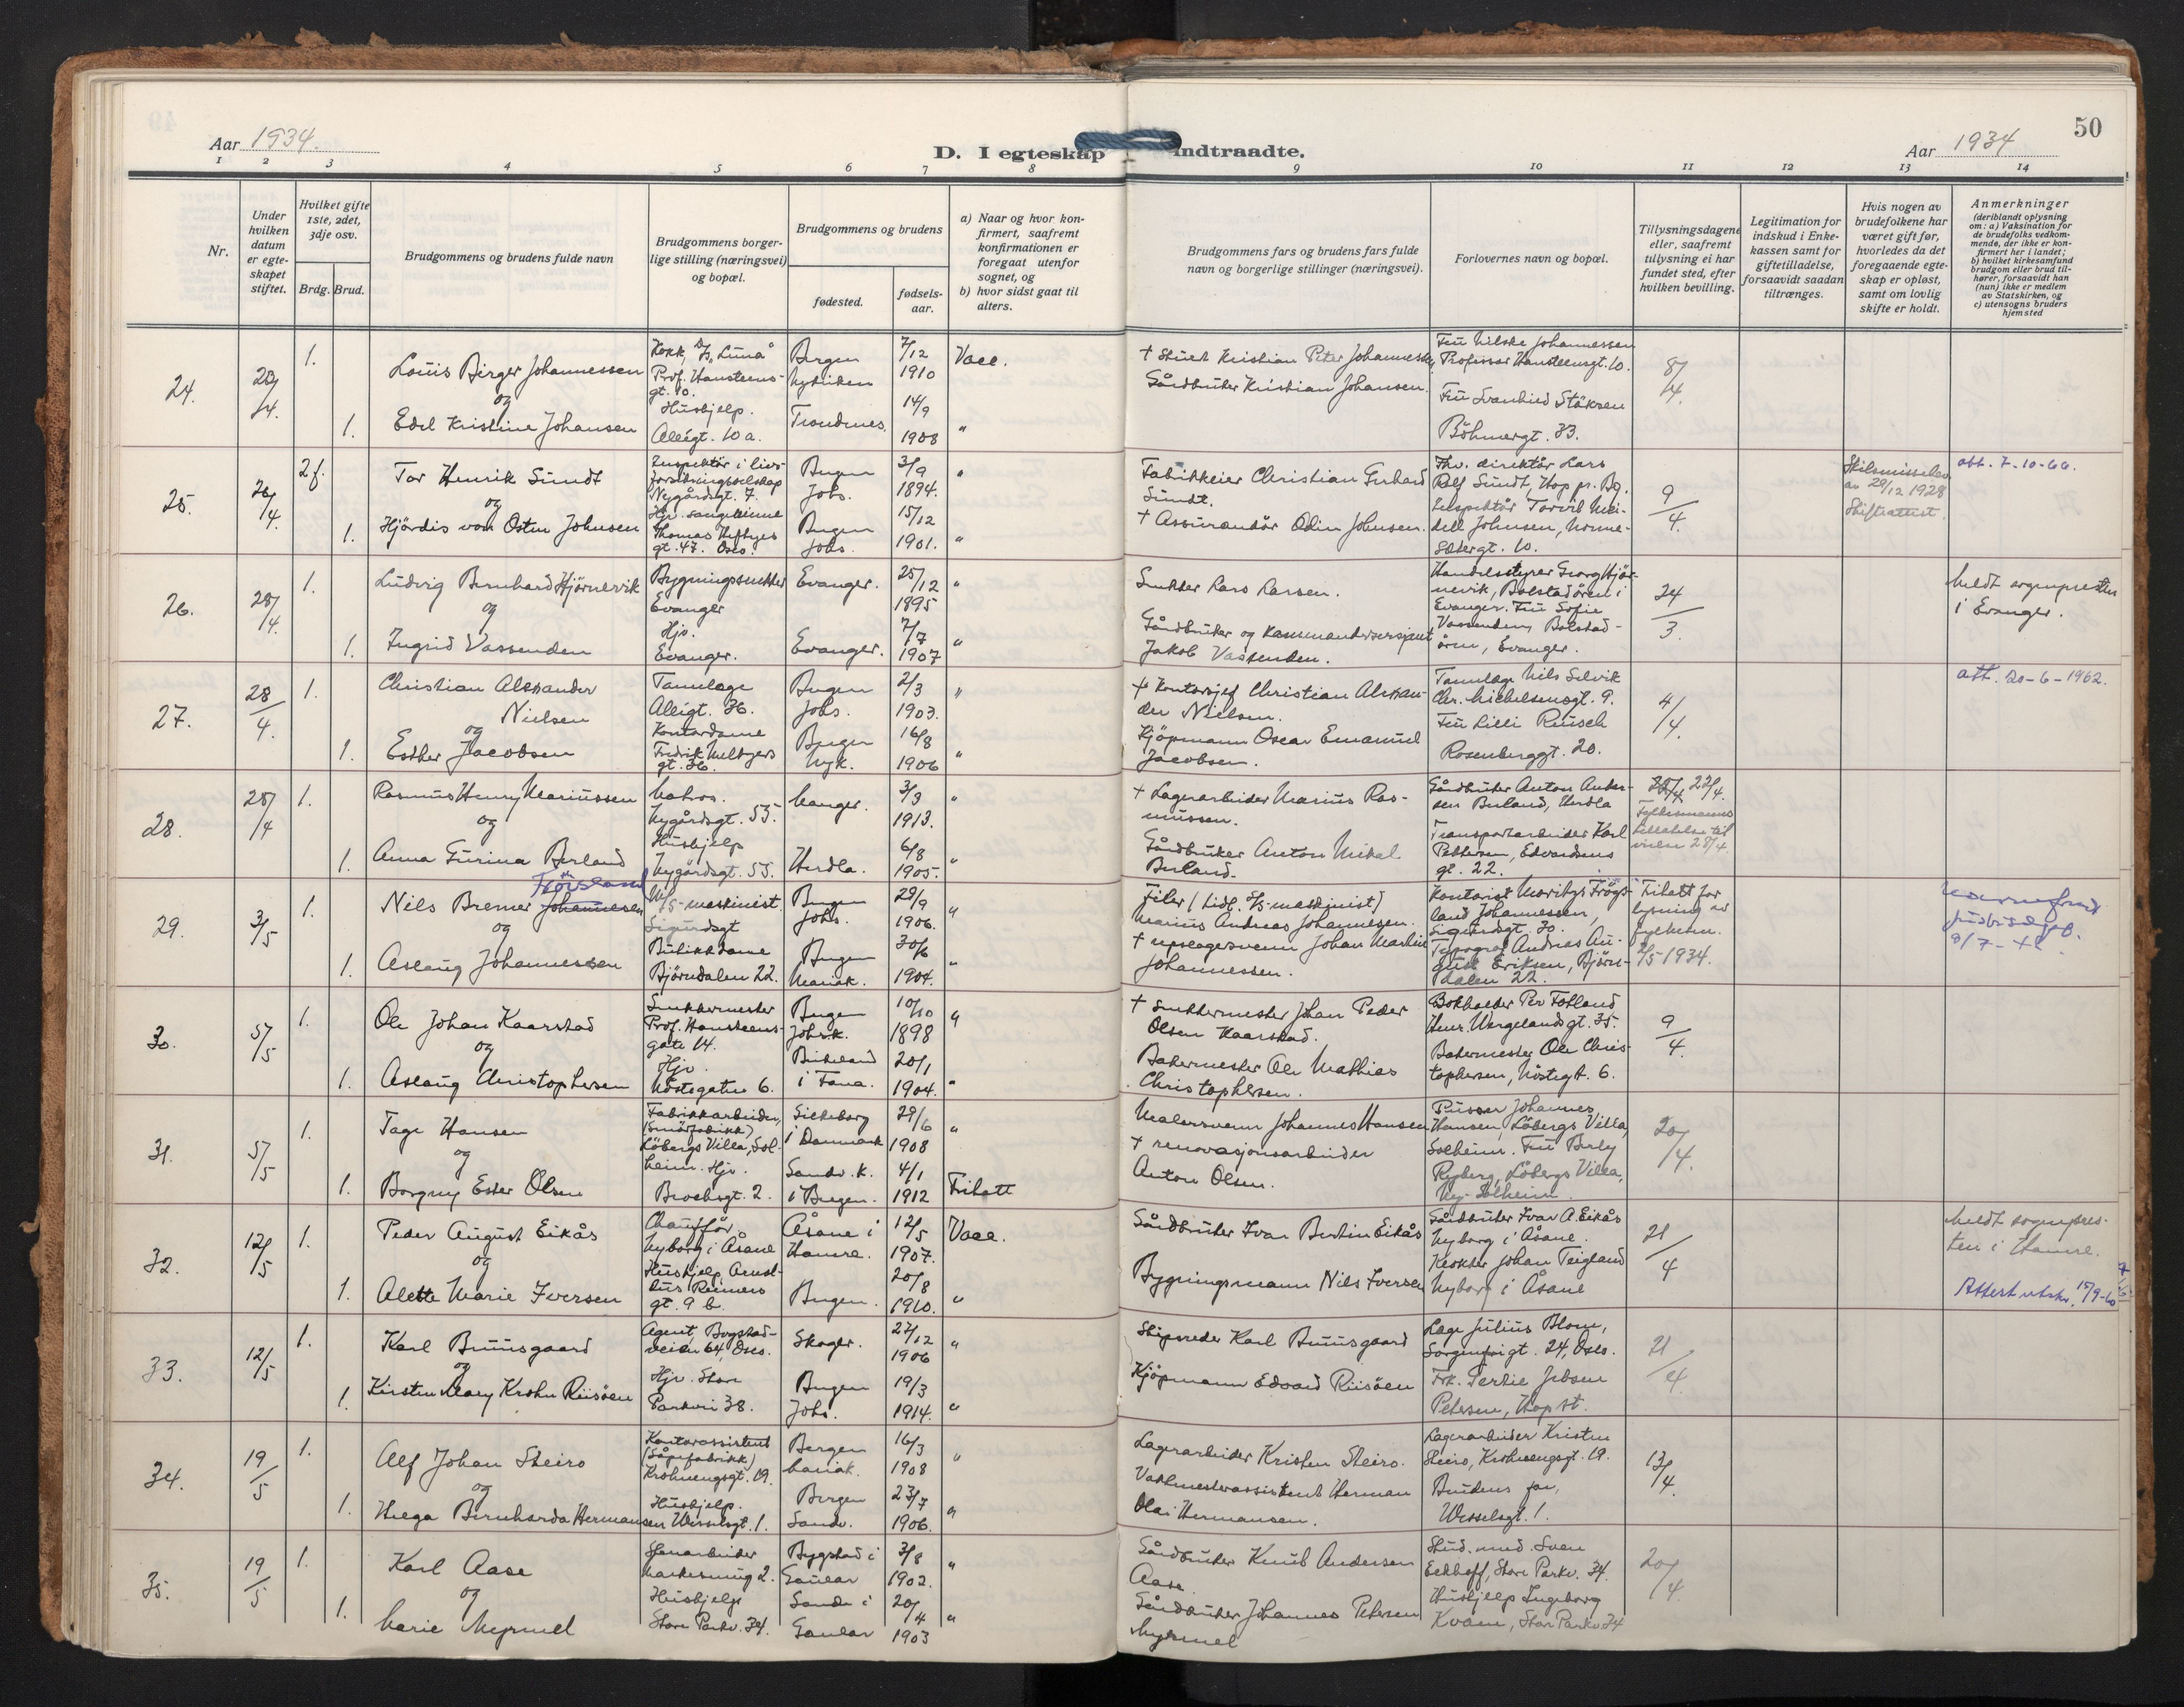 49
50
Aar 1934.
D. I egteskap indtraadte.
Aar 1934
1 2 3 4 5 6 7 8 9 10 11 12 13 14
Nr.
Under hvilken datum er egteskapet stiftet.
Hvilket gifte 1ste, 2det, 3dje osv.
Brdg. Brud.
Brudgommens og brudens fulde navn
Brudgommens borgerlige stilling (næringsvei) og bopæl.
Brudgommens og brudens
fødested.
fødselsaar.
a) Naar og hvor konfirmert, saafremt konfirmationen er foregaat utenfor sognet, og
b) hvor sidst gaat til alters.
Brudgommens fars og brudens fars fulde navn og borgerlige stillinger (næringsvei).
Forlovernes navn og bopæl.
Tillysningsdagene eller, saafremt tillysning ei har fundet sted, efter hvilken bevilling.
Legitimation for indskud i Enkekassen samt for giftetilladelse, forsaavidt saadan tiltrænges.
Hvis nogen av brudefolkene har været gift før, hvorledes da det foregaaende egteskap er opløst, samt om lovlig skifte er holdt.
Anmerkninger
(deriblandt oplysning om: a) Vaksination for de brudefolks vedkommende, der ikke er konfirmert her i landet; b) hvilket kirkesamfund brudgom eller brud tilhører, forsaavidt han (hun) ikke er medlem av Statskirken, og c) utensogns bruders hjemsted
24.
1.
Louis Birger Johannessen
og
1.
Edel Kristine Johansen
Kokk, D/S "Luna"
Prof. Hansteensgt. 10.
Hushjelp.
Allégt. 10 a.
Bergen
Nykirken
Trondenes
7/12 1910
14/9 1908
Vacc.
"
+ Stuert Kristian Peter Johannessen
Gårdbruker Kristian Johansen.
Professor Hansteensgt. 10.
Böhmergt. 33.
8/4.
25.
26/4
2 f.
Tor Henrik Sundt
og
1.
Hjördis von Osten Johnsen
Inspektör i livsforsikringsselskap
Nygårdsgt. 7.
Thomas Heftyes gt. 47. Oslo.
Bergen Johs.
Bergen Johs.
3/9 1894.
15/12 1901.
"
"
Fabrikkeier Christian Gerhard Sundt.
+ Assurandör Odin Johnsen.
Fhv. direktör Lars Rolf Sundt, Hop pr. Bg.
9/4.
Skilsmissebev. av 29/12 1928
Skifteattest.
att. 7-10-66.
26.
28/4.
1.
Ludvig Bernhard Hjörnevik
og
1.
Ingrid Vassenden
Bygningssnekker
Evanger
Hjv.
Evanger.
Evanger.
Evanger.
25/12 1895
7/7 1907
"
"
Snekker Lars Larsen.
Jakob Vassenden.
Handelsstyrer Georg Hjörnevik, Bolstadören i Evanger. Fru Sofie Vassenden, Bolstadören, Evanger.
24/3.
Meldt sognepresten i Evanger.
27.
28/4.
1.
Christian Alexander Nielsen
og
1.
Esther Jacobsen
Tannlege
Allégt. 36.
Kontordame
Fredrik Meltzers gt. 36.
Bergen Johs.
Bergen Nyk.
2/3 1903.
16/8 1906
"
"
+ Kontorsjef Christian Alexander Nielsen.
Kjöpmann Oscar Emanuel Jacobsen.
Tannlege Nils Selvik
Chr. Michelsensgt. 9.
Fru Lilli Rusch
Rosenberggt. 20.
4/4.
att. 20-6-1962.
28.
28/4
1.
Rasmus Henry Mariussen
og
1.
Anna Gurina Berland
Matros.
Nygårdsgt. 55.
Hushjelp
Nygårdsgt. 55.
Manger.
Herdla.
3/3 1913.
6/8 1905.
"
"
+ Lagerarbeider Marius Rasmussen.
Gårdbruker Anton Mikal Berland.
Gårdbruker Anton Andersen Berland, Herdla
Transportarbeider Karl Pettersen, Edvardsens gt. 22.
22/4.
29.
3/5
1.
Nils Bremer Johannessen
Frögsland
og
1.
Aslaug Johannessen
M/S-maskinist.
Sigurdsgt
Butikkdame
Björndalen 22.
Bergen Johs.
Bergen Mariak.
29/9 1906.
30/6 1904.
"
"
Marius Andreas Johannessen.
+ repslagersvenn Johan Martin Johannessen.
Kontorist Moritz Frögsland Johannessen, Sigurdsgt. 30.
Typograf Andreas August Eriksen, Björndalen 22.
Fritatt for lysning av fylkesm. 2/5 1934.
30.
5/5
1.
Ole Johan Kaarstad
og
1.
Aslaug Christophersen
Snekkermester
Prof. Hansteensgate 14.
Hjv.
Nöstegaten 6.
Bergen Johs.k.
Birkeland i Fana.
10/10 1898
20/1 1904.
"
"
+ Snekkermester Johan Peder Olsen Kaarstad.
Bakermester Ole Mathias Christophersen.
Bokholder Per Fotland
Henr. Wergelandsgt. 35.
Bakermester Ole Christophersen, Nöstegt. 6.
9/4.
31.
5/5
1.
Tage Hansen
og
1.
Borgny Ester Olsen
Fabrikkarbeider, (Smörfabrikk)
Löbergs Villa, Solheim. Hjv.
Brochsgt. 2.
Silkeborg i Danmark
Sandv. k. i Bergen.
29/6 1908
4/1 1912
"
Fritatt
Malersvenn Johannes Hansen
+ renovasjonsarbeider Anton Olsen.
Pusser Johannes Hansen, Löbergs Villa, Solheim. Fru Berly Ryberg, Löbergs Villa, Ny-Solheim.
20/4.
32.
12/5
1.
Peder August Eikås
og
1.
Alette Marie Iversen
Chaufför.
Nyborg i Åsane
Hushjelp Arnoldus Reimers gt. 9 b.
Åsane i Hamre.
Bergen.
12/5 1907.
20/8 1910.
Vacc.
"
Gårdbruker Ivar Bertin Eikås
Bygningsmann Nils Iversen
Gårdbruker Ivar A. Eikås
Nyborg i Åsane.
Klokker Johan Teigland
Nyborg i Åsane
21/4
Meldt sognepresten i Hamre.
Attest utskr. 15/9-60
33.
12/5
1.
Karl Bruusgaard
og
1.
Kirsten Mary Krohn Riisöen
Agent, Bogstadveien 64, Oslo.
Hjv. Store Parkvei 38.
Skoger.
Bergen Johs.
27/12 1906
19/3 1914.
"
"
Skipsreder Karl Bruusgaard
Kjöpmann Edvard Riisöen
Læge Julius Blom,
Sorgenfrigt. 24, Oslo.
Petersen, Hop st.
21/4.
34.
19/5
1.
Alf Johan Steiro
og
1.
Helga Bernharda Hermansen
Kontorassistent (Såpefabrikk)
Krohnengsgt. 19.
Hushjelp.
Wesselsgt. 1.
Bergen Mariak.
Bergen Sandv.
16/3 1908
23/7 1906.
"
"
Lagerarbeider Kristen Steiro.
Vaktmesterassistent Herman Olai Hermansen.
Lagerarbeider Kristen Steiro, Krohnengsgt. 19.
Brudens far, Wesselsgt. 1.
13/4.
35.
19/5
1.
Karl Aase
og
1.
Marie Myrmel
Stenarbeider
Markesmug 2.
Hushjelp
Store Parkv. 34.
Bygstad i Gaular
Sande i Gaular
3/8 1902.
20/4 1903
"
"
Gårdbruker Knut Andersen Aase.
Gårdbruker Johannes Petersen Myrmel
Stud. med. Sven Eckhoff, Store Parkv. 34.
Hushjelp Ingeborg Kvåm, Store Parkv. 34
20/4